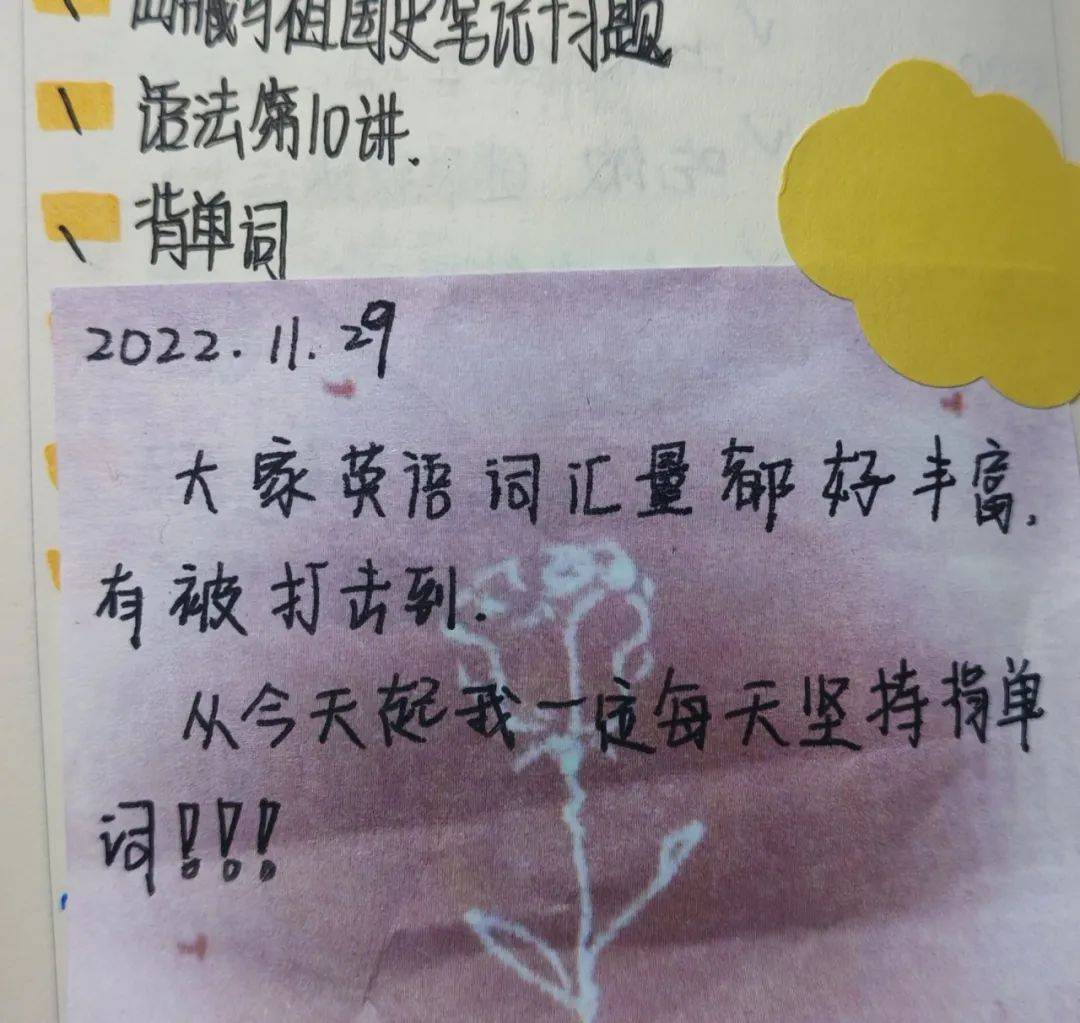 西藏与祖国史笔记+习题
语法第10讲.
背单词
2022.11.29
大家英语词汇量都好丰富,
有被打击到.
从今天起我一定每天坚持背单
词!!!